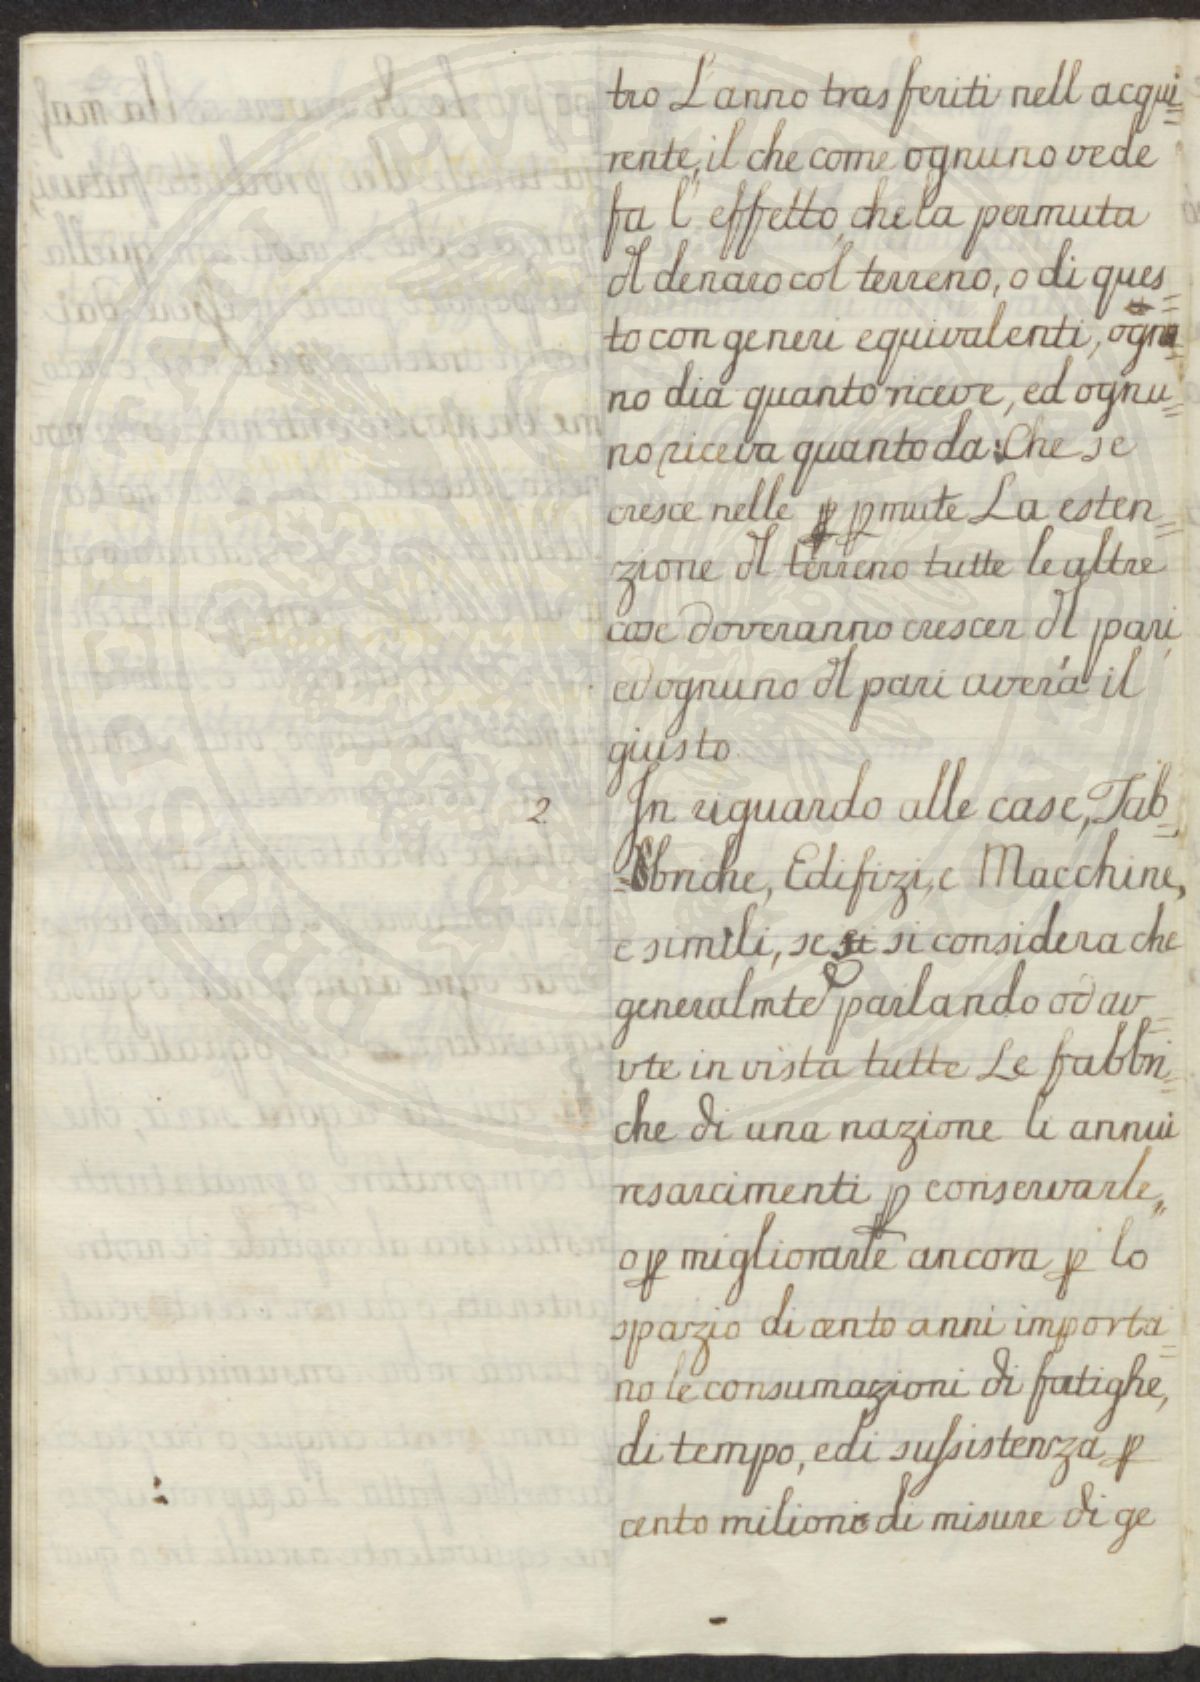 tro L'anno trasferiti nell acqui=
rente, il che come ognuno vede
fa l' effetto, che la permuta
dl denaro col terreno, o di ques=
to con generi equivalenti, ogn
no dia quanto riceve, ed ognu=
no riceva quanto da: Che se
cresce nelle ꝑ ꝑmute La esten=
zione dl terreno tutte le altre
cose doveranno crescer dl pari,
ed ognuno dl pari averà il
giusto.
2 In riguardo alle case, Fab=
=bbriche, Edifizi, e Macchine,
e simili, se si si considera che
generalmte parlando ed av=
vte in vista tutte Le fabbri=
che di una nazione li annui
resarcimenti ꝑ conservarle,,
o ꝑ migliorarle ancora ꝑ lo
spazio di cento anni importa=
no le consumazioni di fatighe,
di tempo, e di sussistenza ꝑ
cento milioni di misure di ge